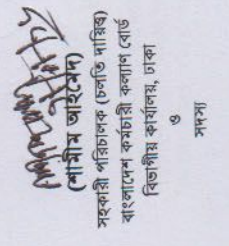 (শামীম আহমেদ)
সহকারী পরিচালক (চলতি দায়িত্ব)
বাংলাদেশ কর্মচারী কল্যাণ বোর্ড
বিভাগীয় কার্যালয়, ঢাকা
ও
সদস্য